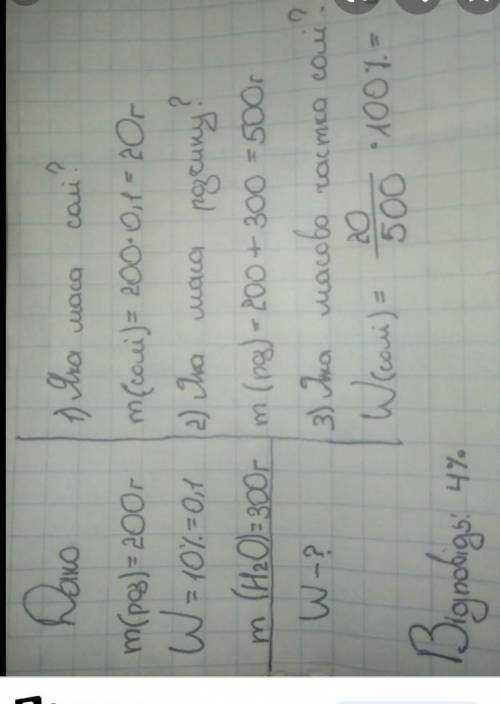 Дано
m(роз)=200г
W=10%=0,1
m (H2O)=300г
W-?
1) Яка маса солі?
m(солі)=200·0,1=20г
2) Яка маса розчину?
m (роз)=200+300=500г
3) Яка масова частка солі?
W(солі)= 20/500 ·100%=
Відповідь: 4%